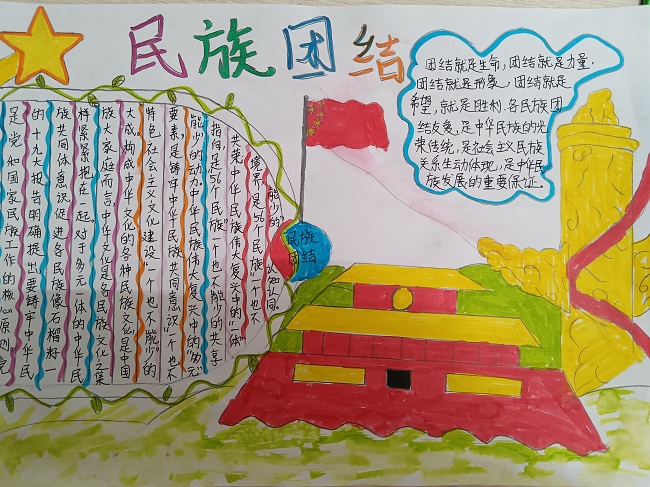 民族团结
团结就是生命，团结就是力量.
团结就是形象，团结就是
希望，就是胜利.各民族团
结友爱，是中华民族的光
荣传统，是社会主义民族
关系生动体现，是中华民
族发展的重要保证.
民族
团结
是党和国家民族工作的核心原则党
的十九大报告明确提出要铸牢中华民
族共同体意识促进各民族像石榴籽一
样紧紧抱在一起对于多元一体的中华民
族大家庭而言，中华文化是各民族文化之集
大成构成中华文化的各种民族文化是中国
特色社会主义文化建设“一个也不能少”的
要素是铸牢中华民族共同意识“一个也不
能少”的动力。中华民族伟大复兴中的“多元”
指向是“56个民族”一个也不能少的共享
共荣中华民族伟大复兴中的“一体”
境界是“56个民族”一个也不
能少的”认知认同。